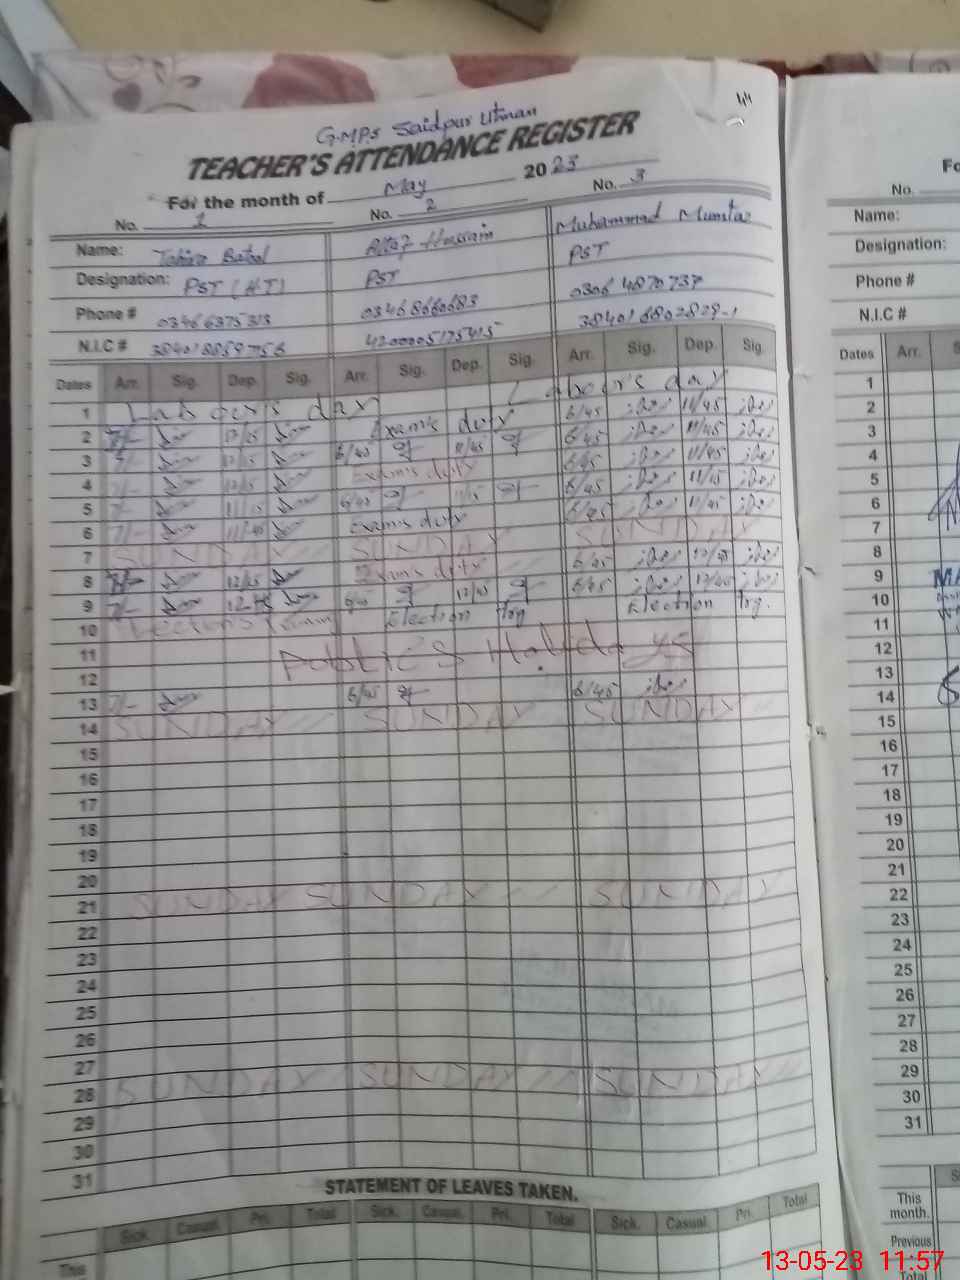 G.M.P.S Saidpur Utman
TEACHER'S ATTENDANCE REGISTER
For the month of May 2023
No. 1 No. 2 No. 3
Name: Tahira Batool Altaf Hussain Muhammad Mumtaz
Designation: PST (H.T) PST PST
Phone # 03466375313 03468660683 0306 4870737
N.I.C # 4200005175415
Dates Arr. Sig. Dep. Sig. Arr. Sig. Dep. Sig. Arr. Sig. Dep. Sig.
1 Labour's day Labour's day
2 7/- 12/15 Exam's duty 6/45 11/45
3 7/- 12/15 6/45 11/45 6/45 11/45
4 7/- 12/15 Exam's duty 6/45 11/45
5 7/- 11/15 6/45 11/15 6/45 11/15
6 7/- 11/45 Exam's duty 6/45 11/45
7 SUNDAY SUNDAY SUNDAY
8 7/- 12/15 Exam's duty 6/45 12/45
9 7/- 12/45 6/45 12/45 6/45 12/45
10 Election Trg Election Trg.
11 PUBLIC'S Holidays
12
13 7/- 6/45 6/45
14 SUNDAY SUNDAY SUNDAY
15
16
17
18
19
20
21 SUNDAY SUNDAY SUNDAY
22
23
24
25
26
27
28 SUNDAY SUNDAY SUNDAY
29
30
31
STATEMENT OF LEAVES TAKEN.
Sick. Casual. Pri. Total Sick. Casual. Pri. Total Sick. Casual. Pri. Total
This
No.
Name:
Designation:
Phone #
N.I.C #
Dates Arr.
1
2
3
4
5
6
7
8
9
10
11
12
13
14
15
16
17
18
19
20
21
22
23
24
25
26
27
28
29
30
31
This
month.
Previous
Total
13-05-23 11:57